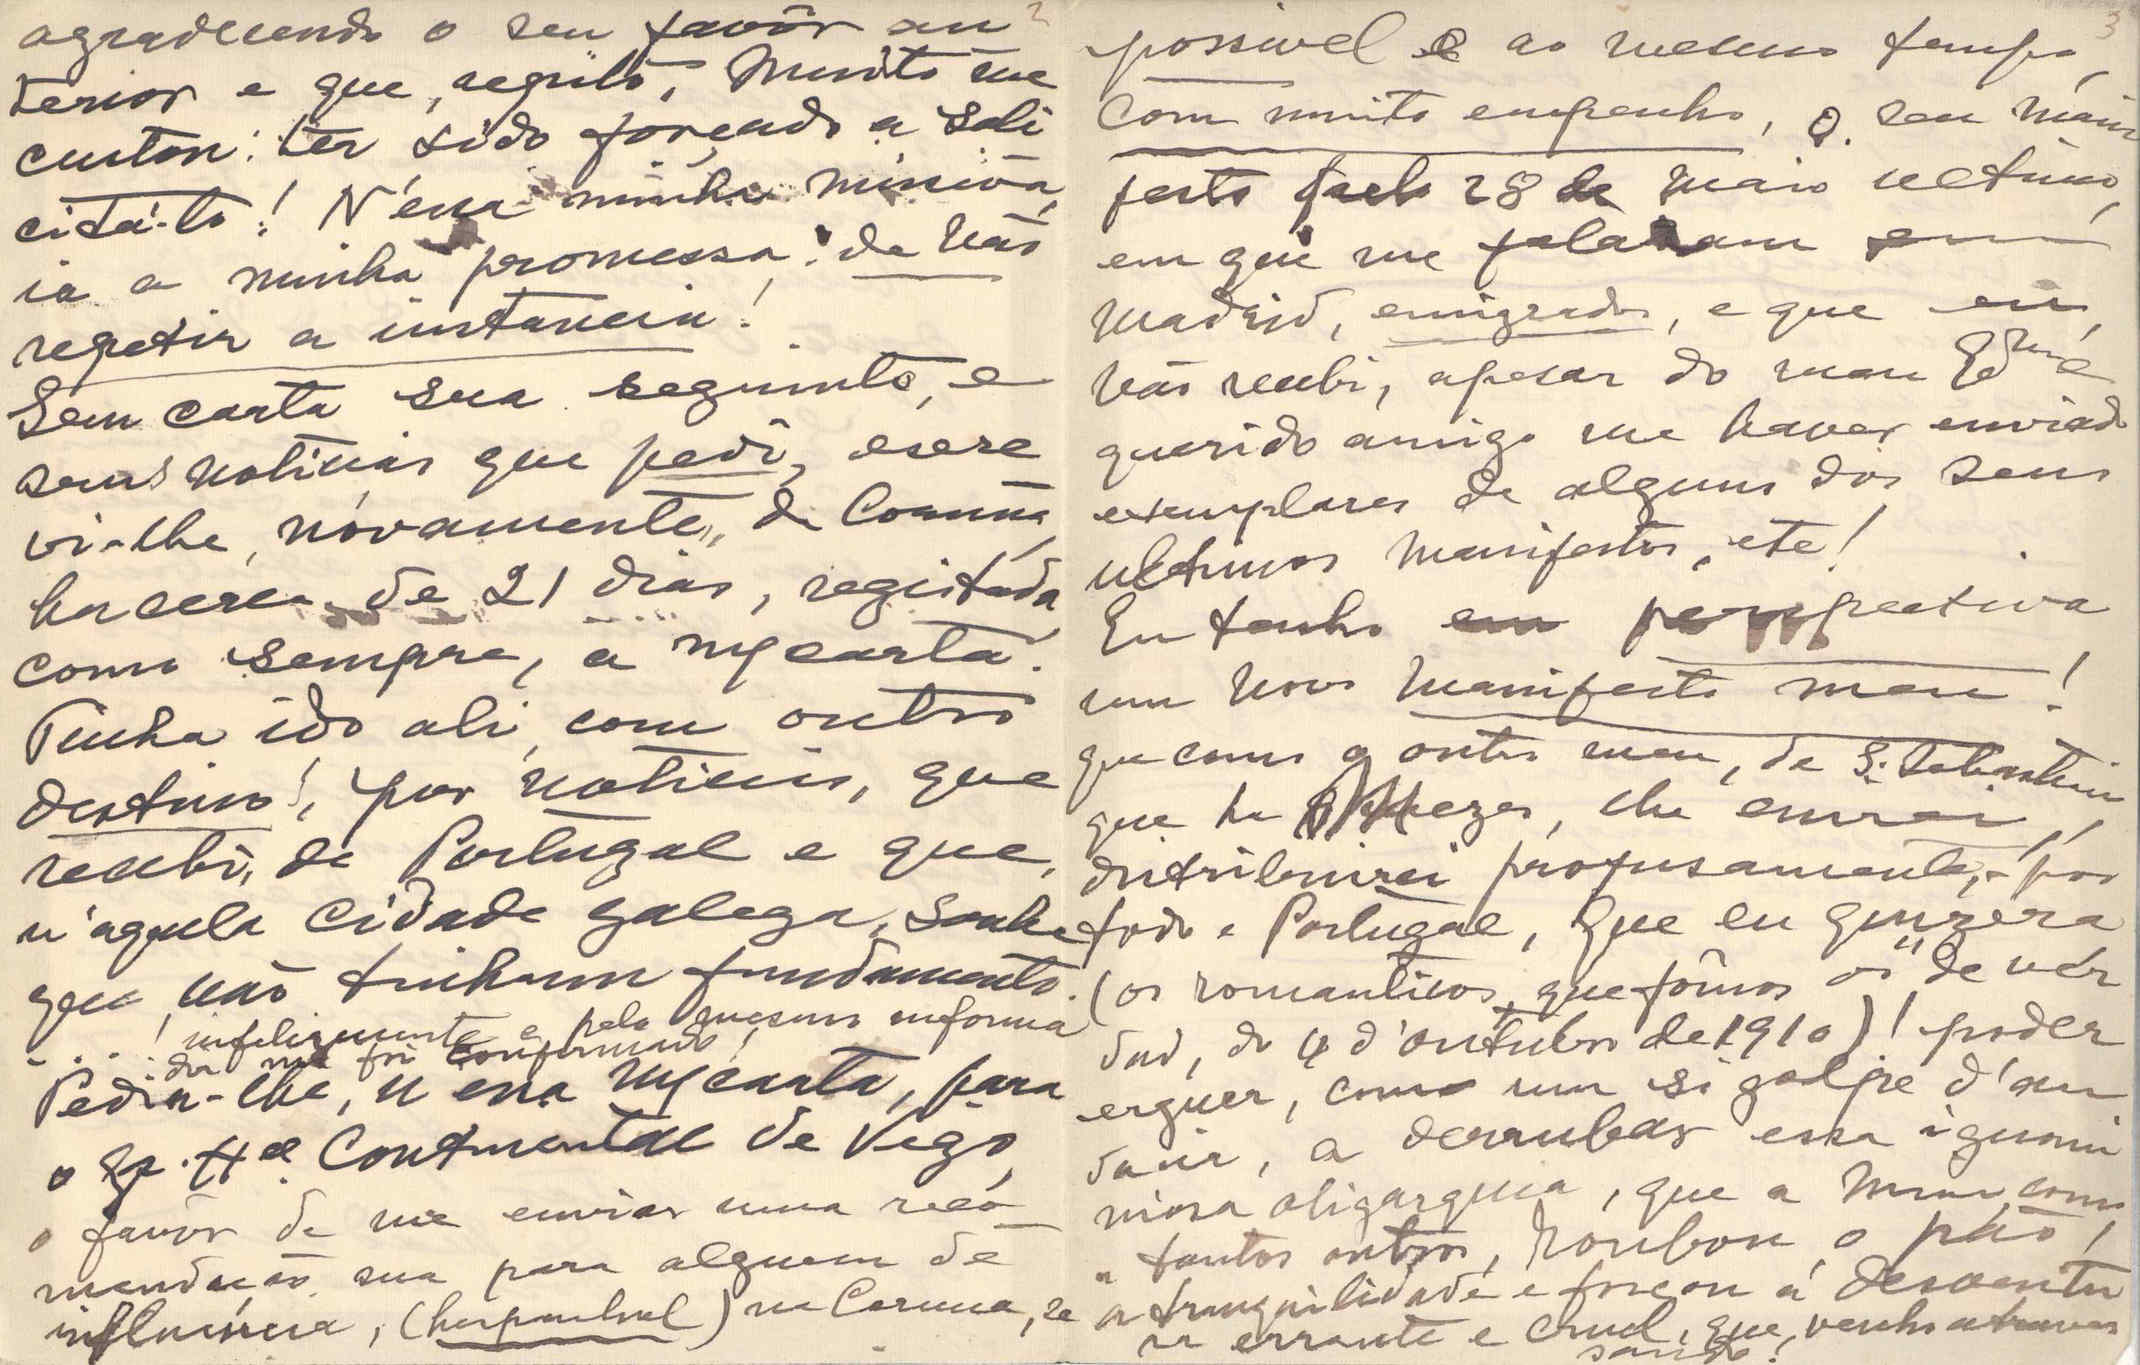 2
agradecendo o seu favôr an
terior e que, repito, muito me
custou: ter sido forçado a soli
citá-lo! N'essa minha missiva,
ia a minha promessa: de não
repetir a instancia!
Sem carta sua seguinte, e
sem noticias que pedi, escre
vi-lhe, nóvamente, da Corunna,
ha cerca de 21 dias, registada
como sempre, a m/ carta.
Tinha ido ali, com outro
destino!, por noticias, que
recebi, de Portugal e que,
n'aquela cidade galega, soube
que não tinham fundamento.
...! infelizmente e pelo mesmo informa
dor me foi confirmado!
Pedia-lhe, n'essa m/ carta, para
o Gr. Hel Continental de Vigo,
o favôr de me enviar uma reco
mendação sua para alguem de
influencia, (hespanhol) na Coruna, se
3
possivel e ao mesmo tempo,
com muito empenho, o seu mani
festo de 28 de maio ultimo,
em que me falaram em
Madrid, emigrados, e que eu,
não recebi, apesar do meu
querido amigo me haver enviado
exemplares de alguns dos seus
ultimos manifestos, etc!
Eu tenho em perspectiva
um novo manifesto meu!
que como o outro meu, de S. Sebastian
que ha mezes, lhe enviei,
distribuirei profusamente, por
todo o Portugal, que eu quizera
(os romanticos, que fômos os "de ver
dad, do 4 d'outubro de 1910)! poder
erguer, como um só golpe d'au
dacia, a derrubar essa ignomi
niosa oligarquia, que a mim, como
a tantos outros, roubou o pão,
a tranquilidade e forçou á desventu
ra errante e cruel, que, venho atraves
sando!